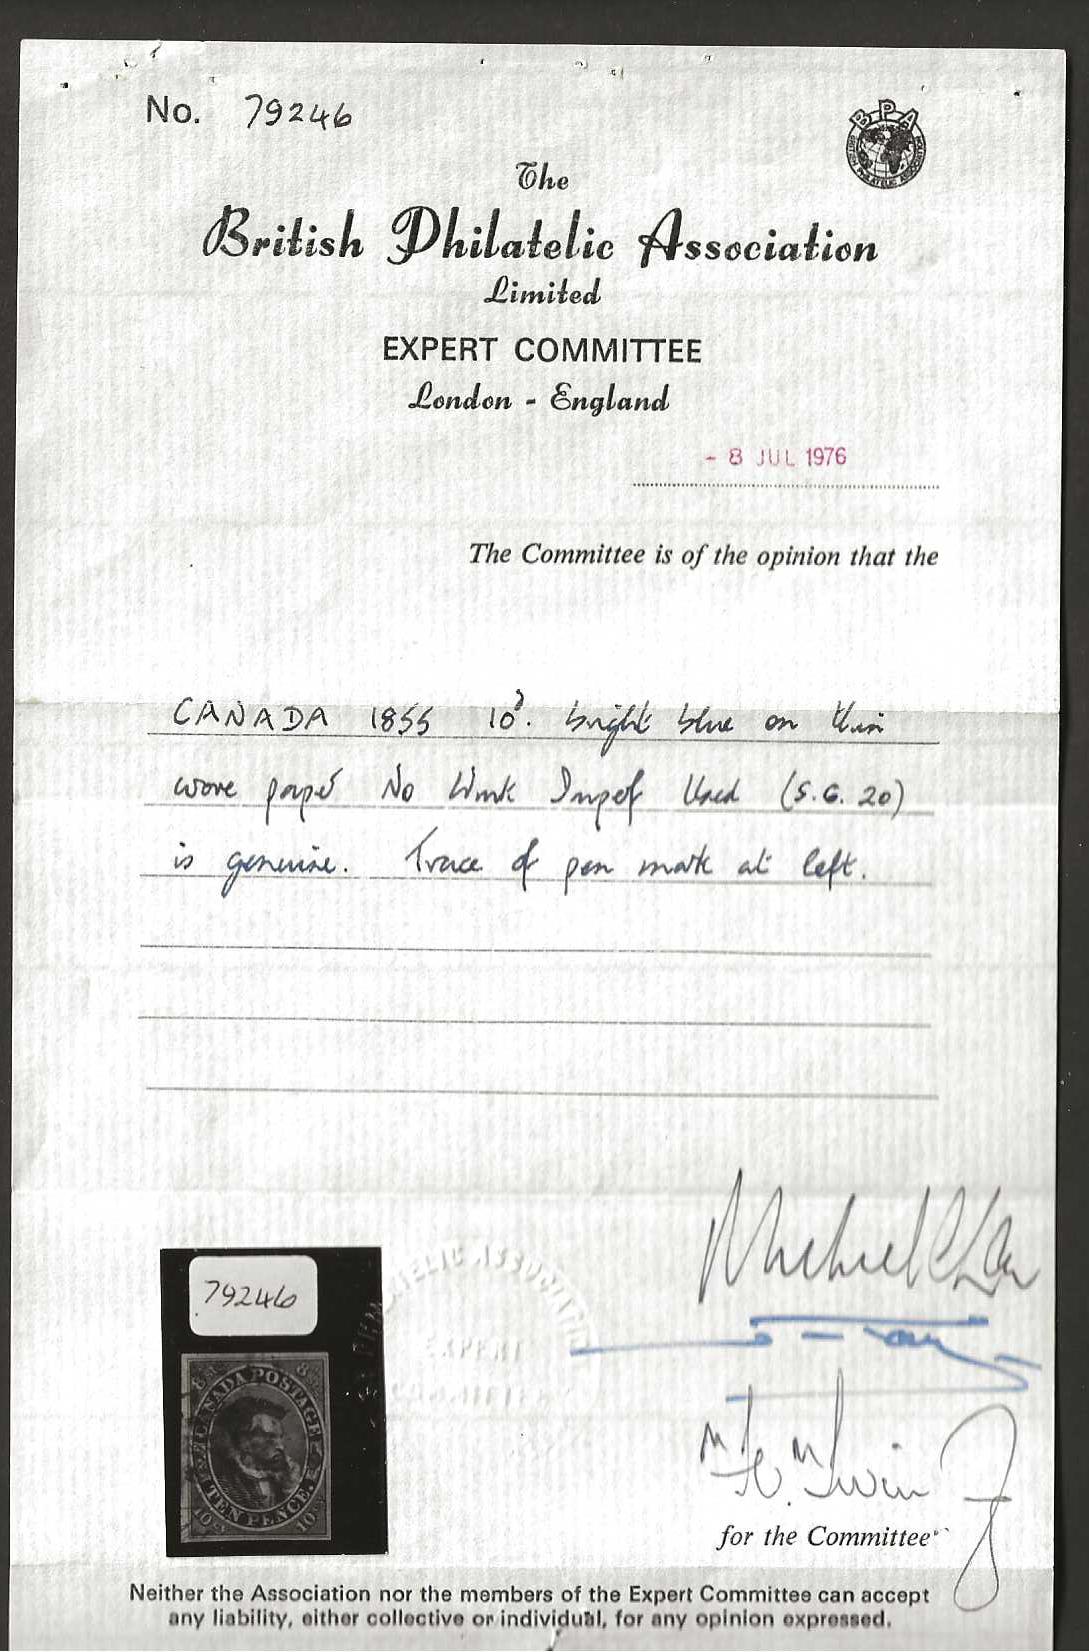 No. 79246
BPA
BRITISH PHILATELIC ASSOCIATION
The
British Philatelic Association
Limited
EXPERT COMMITTEE
London - England
- 8 JUL 1976
The Committee is of the opinion that the
CANADA 1855 10d. bright blue on thin
wove paper No Wmk Imperf Used (S.G. 20)
is genuine. Trace of pen mark at left.
79246
PHILATELIC ASSOCIATION
EXPERT
COMMITTEE
8 CANADA POSTAGE 8
TEN PENCE
10 10
for the Committee
Neither the Association nor the members of the Expert Committee can accept
any liability, either collective or individual, for any opinion expressed.